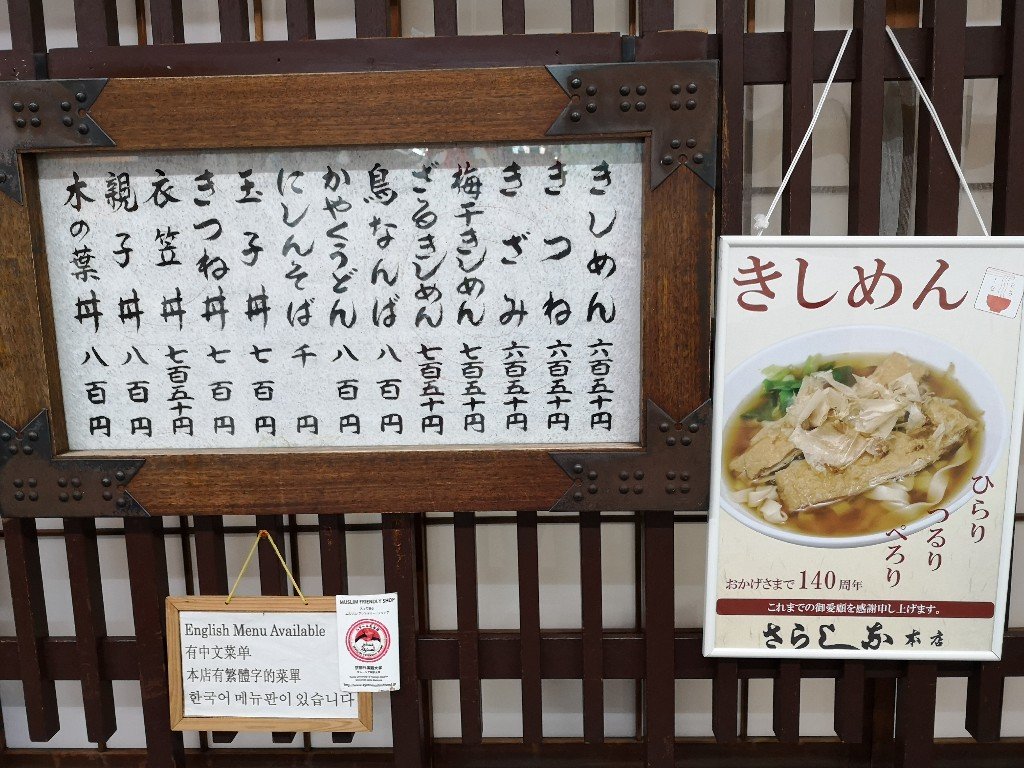 きしめん 六百五十円
きつね 六百五十円
きざみ 六百五十円
梅干きしめん 七百五十円
ざるきしめん 七百五十円
鳥なんば 八百円
かやくうどん 八百円
にしんそば 千円
玉子丼 七百円
きつね丼 七百円
衣笠丼 七百五十円
親子丼 八百円
木の葉丼 八百円
きしめん
ひらり
つるり
ぺろり
おかげさまで140周年
これまでの御愛顧を感謝申し上げます。
さらしな本店
English Menu Available
有中文菜单
本店有繁體字的菜單
한국어 메뉴판이 있습니다
MUSLIM FRIENDLY SHOP